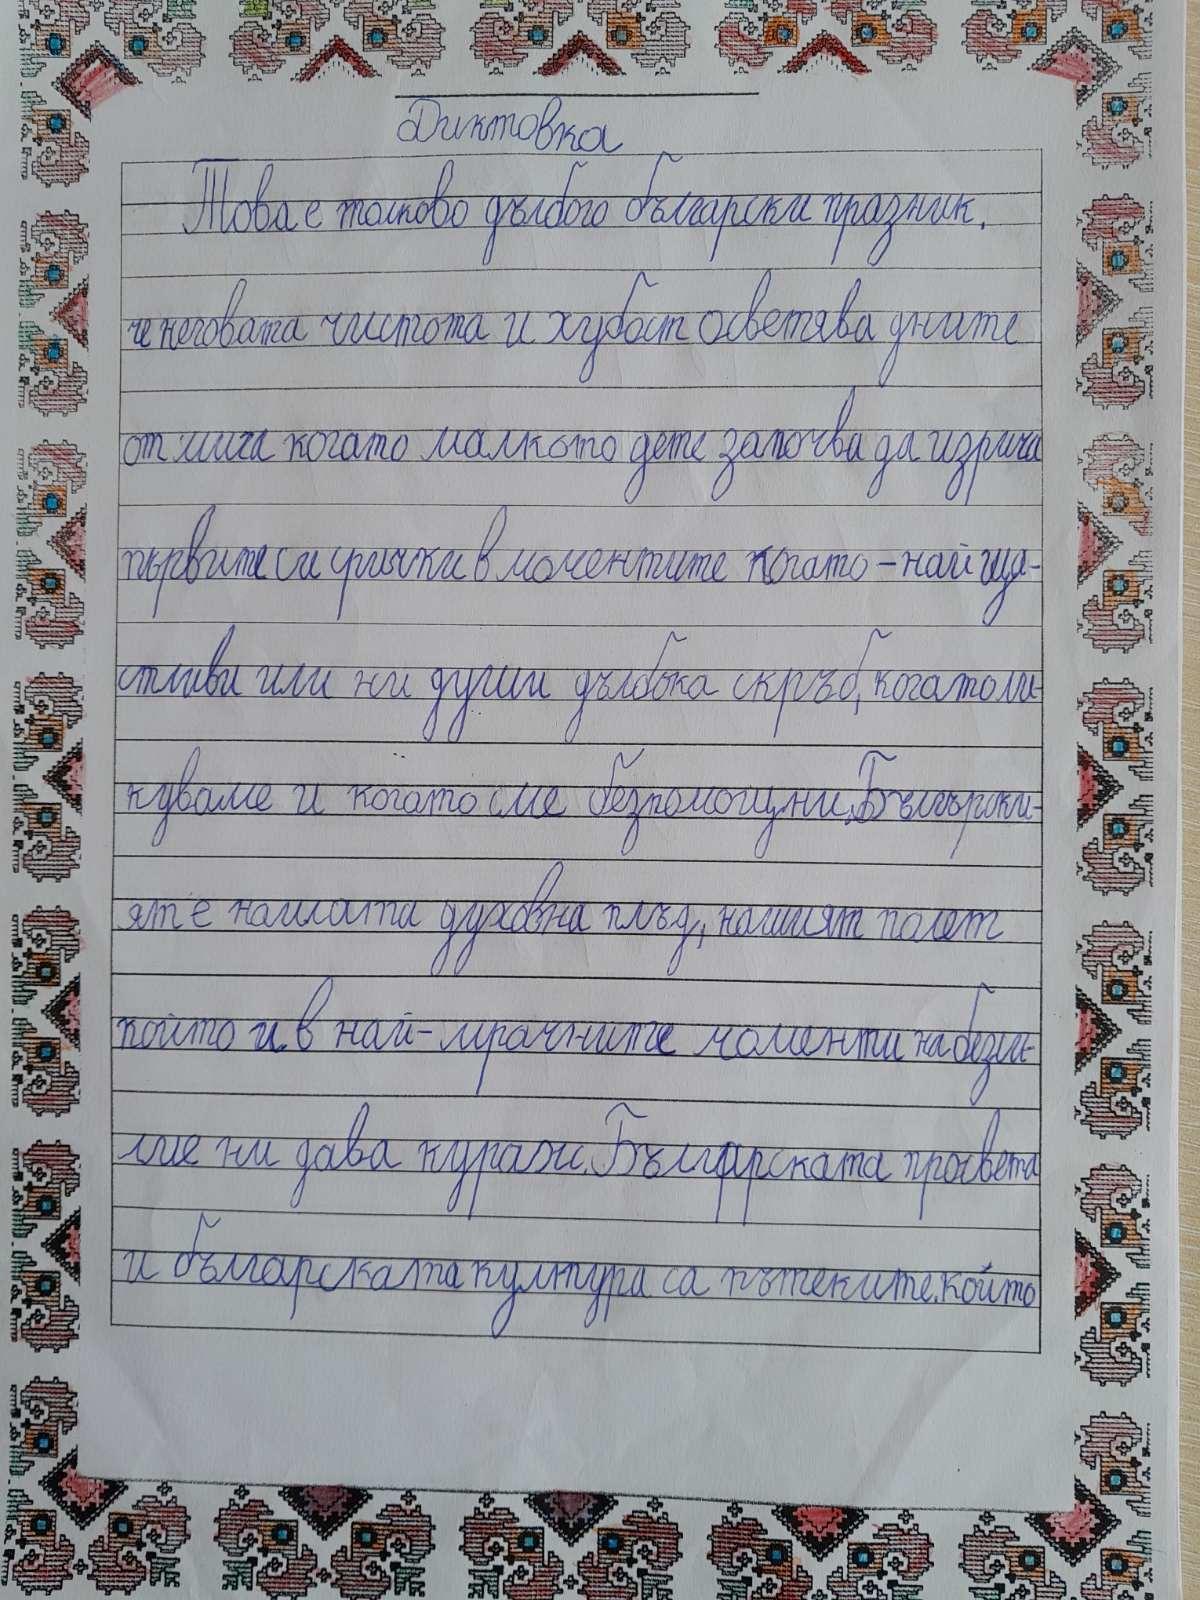 Диктовка
Това е толково дълбого български празник.
че неговата чистота и хубост осветява дните
от мига когато малкото дете започва да изрича
първите си срички в моментите когато -най ща-
стливи или ни души дълбока скръб, когато ли-
куваме и когато сме безпомощни. Български-
ят е нашата духовна плъд, нашият полет
който и в най-мрачните моменти на безси-
лие ни дава кураж. Българската просвета
и българската култура са пътеките. който